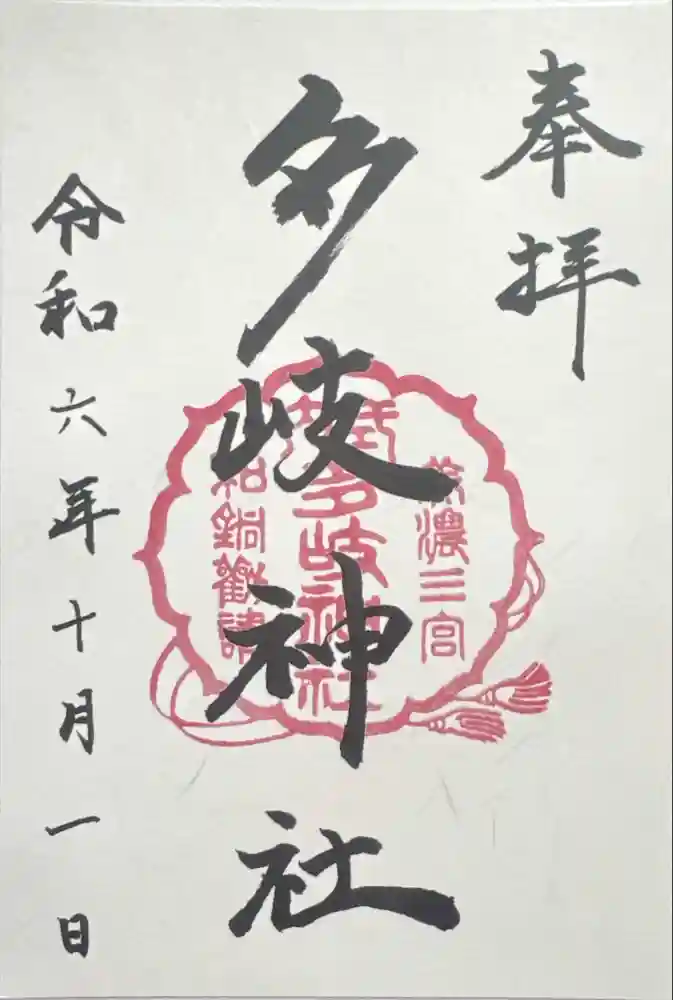 奉拝
多岐神社
美濃三宮
多岐神社
和銅勧請
令和六年十月一日